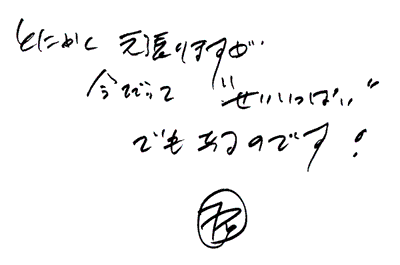 とにかく 頑張りますが
今でだって "せいいっぱい"
でもあるのです!